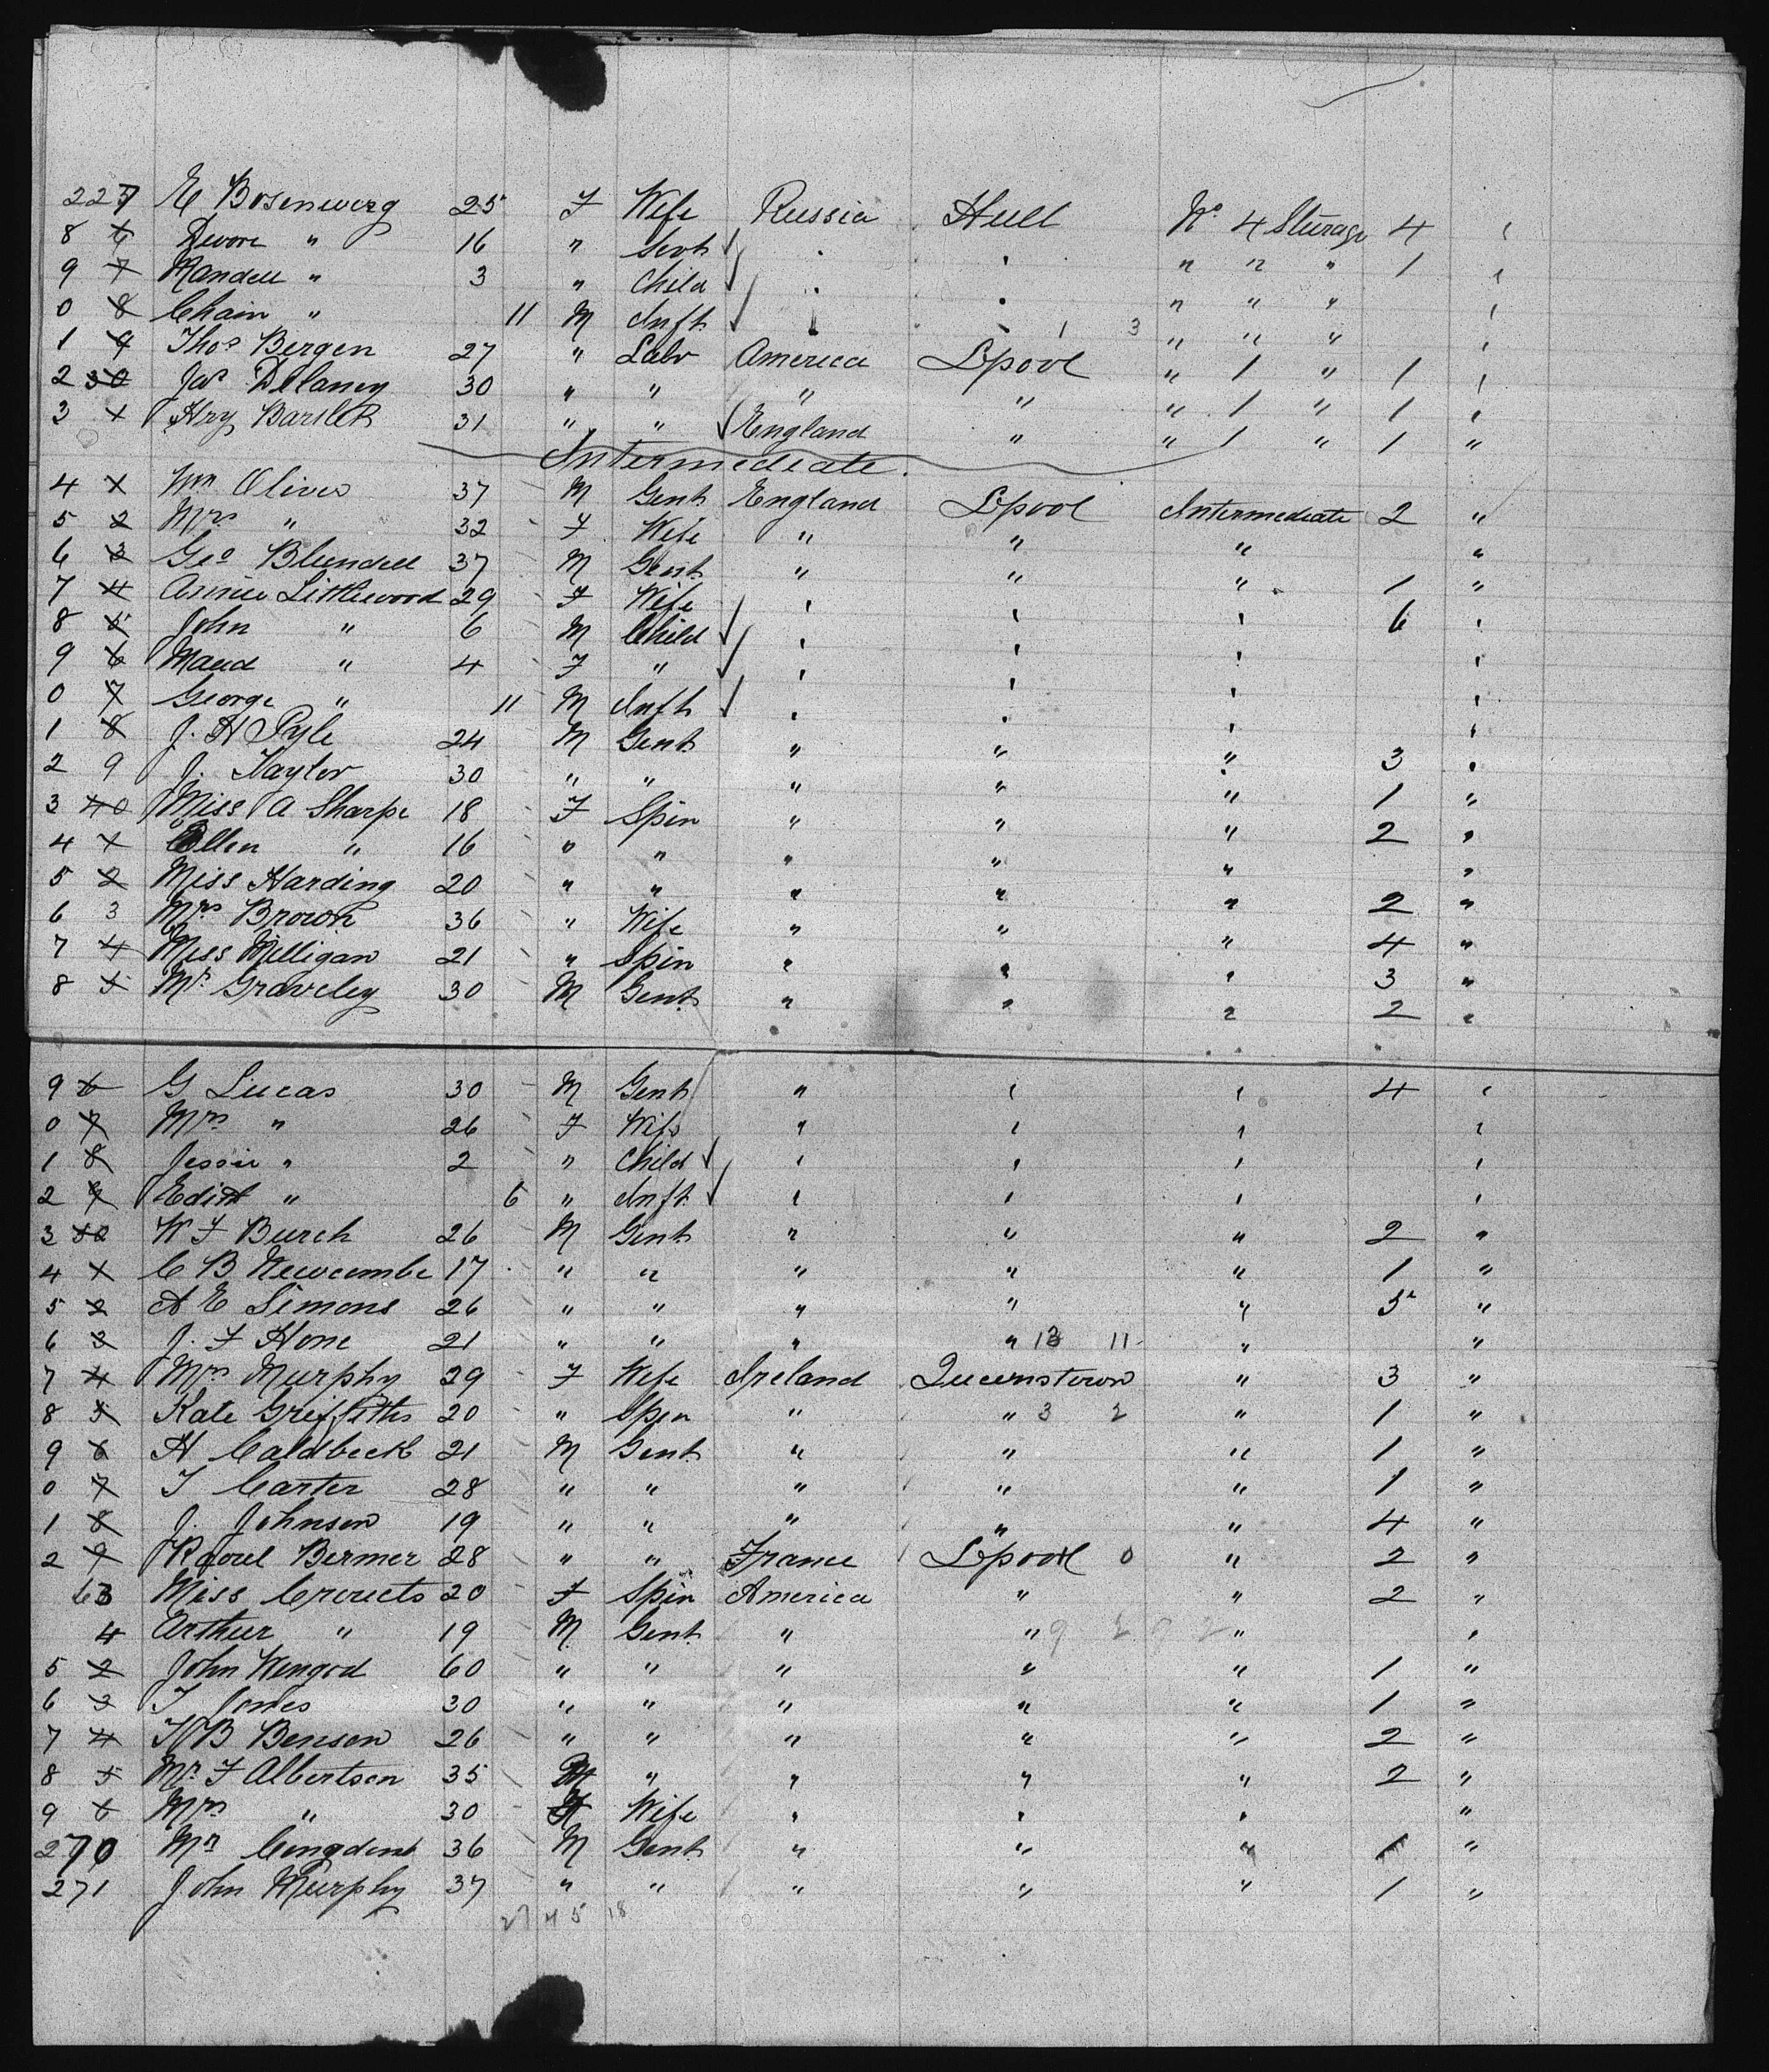 227 E Bosenwerg 25 F Wife Russia Hull No 4 Sturage 4 "
8 6 Devore " 16 " Servt " " " " " 1 "
9 7 Mandell " 3 " Child " " " " " "
0 8 Chain " 11 M Inft " " 1 3 " " " "
1 9 Thos Bergen 27 " Labr America Lpool " 1 " 1 "
2 30 Jas Delaney 30 " " " " " 1 " 1 "
3 1 Hry Bartlett 31 " " England " " 1 " 1 "
Intermediate.
4 1 Wm Oliver 37 M Gent England Lpool Intermediate 2 "
5 2 Mrs " 32 F Wife " " " "
6 3 Geo Blundell 37 M Gent " " " 1 "
7 4 Annie Littlewood 29 F Wife " " " 6 "
8 5 John " 6 M Child " " " "
9 6 Maud " 4 F " " " " "
0 7 George " 11 M Inft " " " "
1 8 J. H Pyle 24 M Gent " " " 3 "
2 9 J. Taylor 30 " " " " " 1 "
3 40 Miss A Sharpe 18 F Spin " " " 2 "
4 1 Ellen " 16 " " " " " "
5 2 Miss Harding 20 " " " " " 2 "
6 3 Mrs Brown 36 " Wife " " " 4 "
7 4 Miss Milligan 21 " Spin " " " 3 "
8 5 Mr Graveley 30 M Gent " " " 2 "
9 6 G Lucas 30 M Gent " " " 4 "
0 7 Mrs " 26 F Wife " " " "
1 8 Jessie " 2 " Child " " " "
2 9 Edith " 6 " Inft " " " "
3 50 W F Burch 26 M Gent " " " 2 "
4 1 C B Newcombe 17 " " " " " 1 "
5 2 A E Simons 26 " " " " " 5 "
6 3 J. F Hone 21 " " " " 13 11 " "
7 4 Mrs Murphy 29 F Wife Ireland Queenstown " 3 "
8 5 Kate Griffiths 20 " Spin " " 3 2 " 1 "
9 6 H Caldbeck 21 M Gent " " " 1 "
0 7 T Carter 28 " " " " " 1 "
1 8 J. Johnson 19 " " " " " 4 "
2 9 Raoul Bermer 28 " " France Lpool 0 " 2 "
63 Miss Croucts 20 F Spin America " " 2 "
4 Arthur " 19 M Gent " " 9 2 " "
5 2 John Wengod 60 " " " " " 1 "
6 3 T Jones 30 " " " " " 1 "
7 4 H B Benson 26 " " " " " 2 "
8 5 Mr F Albertson 35 M " " " " 2 "
9 6 Mrs " 30 F Wife " " " "
270 Mr Congdont 36 M Gent " " " 1 "
271 John Murphy 37 " " " " " 1 "
27 4 5 18